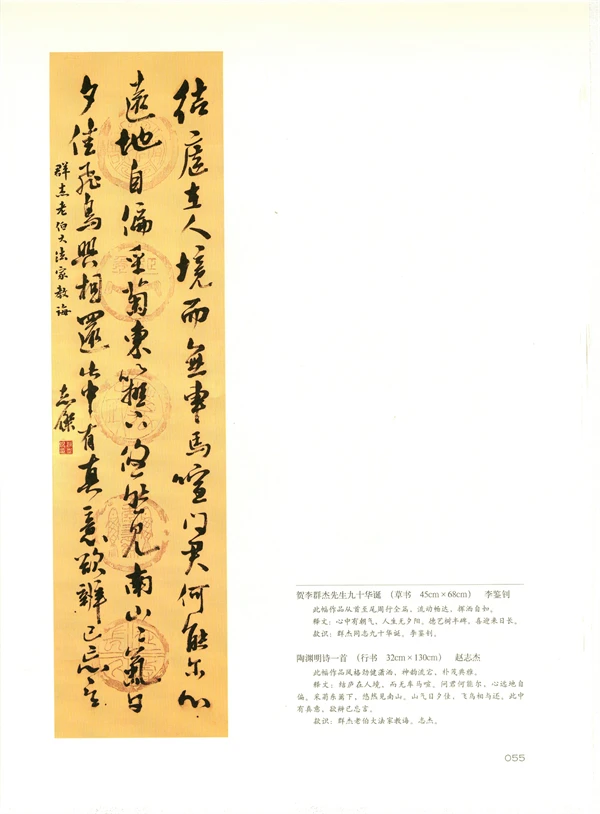 结廬在人境而無車馬喧问君何能尔心
遠地自偏采菊東籬下悠然见南山〻氣日
夕佳飛鳥與相還此中有真意欲辨已忘言
群杰老伯大法家教诲
志傑
贺李群杰先生九十华诞 (草书 45cm×68cm) 李鉴钊
此幅作品从首至尾周行全篇,流动畅达,挥洒自如。
释文:心中有朝气,人生无夕阳。德艺树丰碑,喜迎来日长。
款识:群杰同志九十华诞。李鉴钊。
陶渊明诗一首 (行书 32cm×130cm) 赵志杰
此幅作品风格劲健潇洒,神韵流宕,朴茂典雅。
释文:结庐在人境,而无车马喧。问君何能尔,心远地自
偏。采菊东篱下,悠然见南山。山气日夕佳,飞鸟相与还。此中
有真意,欲辨已忘言。
款识:群杰老伯大法家教诲。志杰。
055